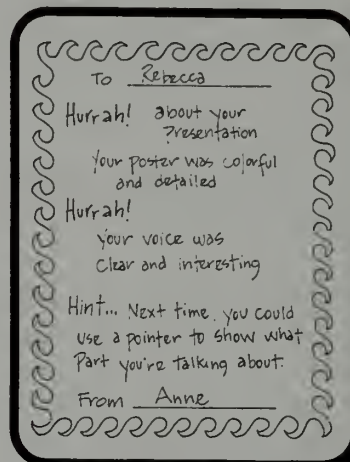 To Rebecca
Hurrah! about your
Presentation
Your poster was colorful
and detailed
Hurrah!
your voice was
Clear and interesting
Hint... Next time, you could
use a pointer to show what
Part you're talking about.
From Anne